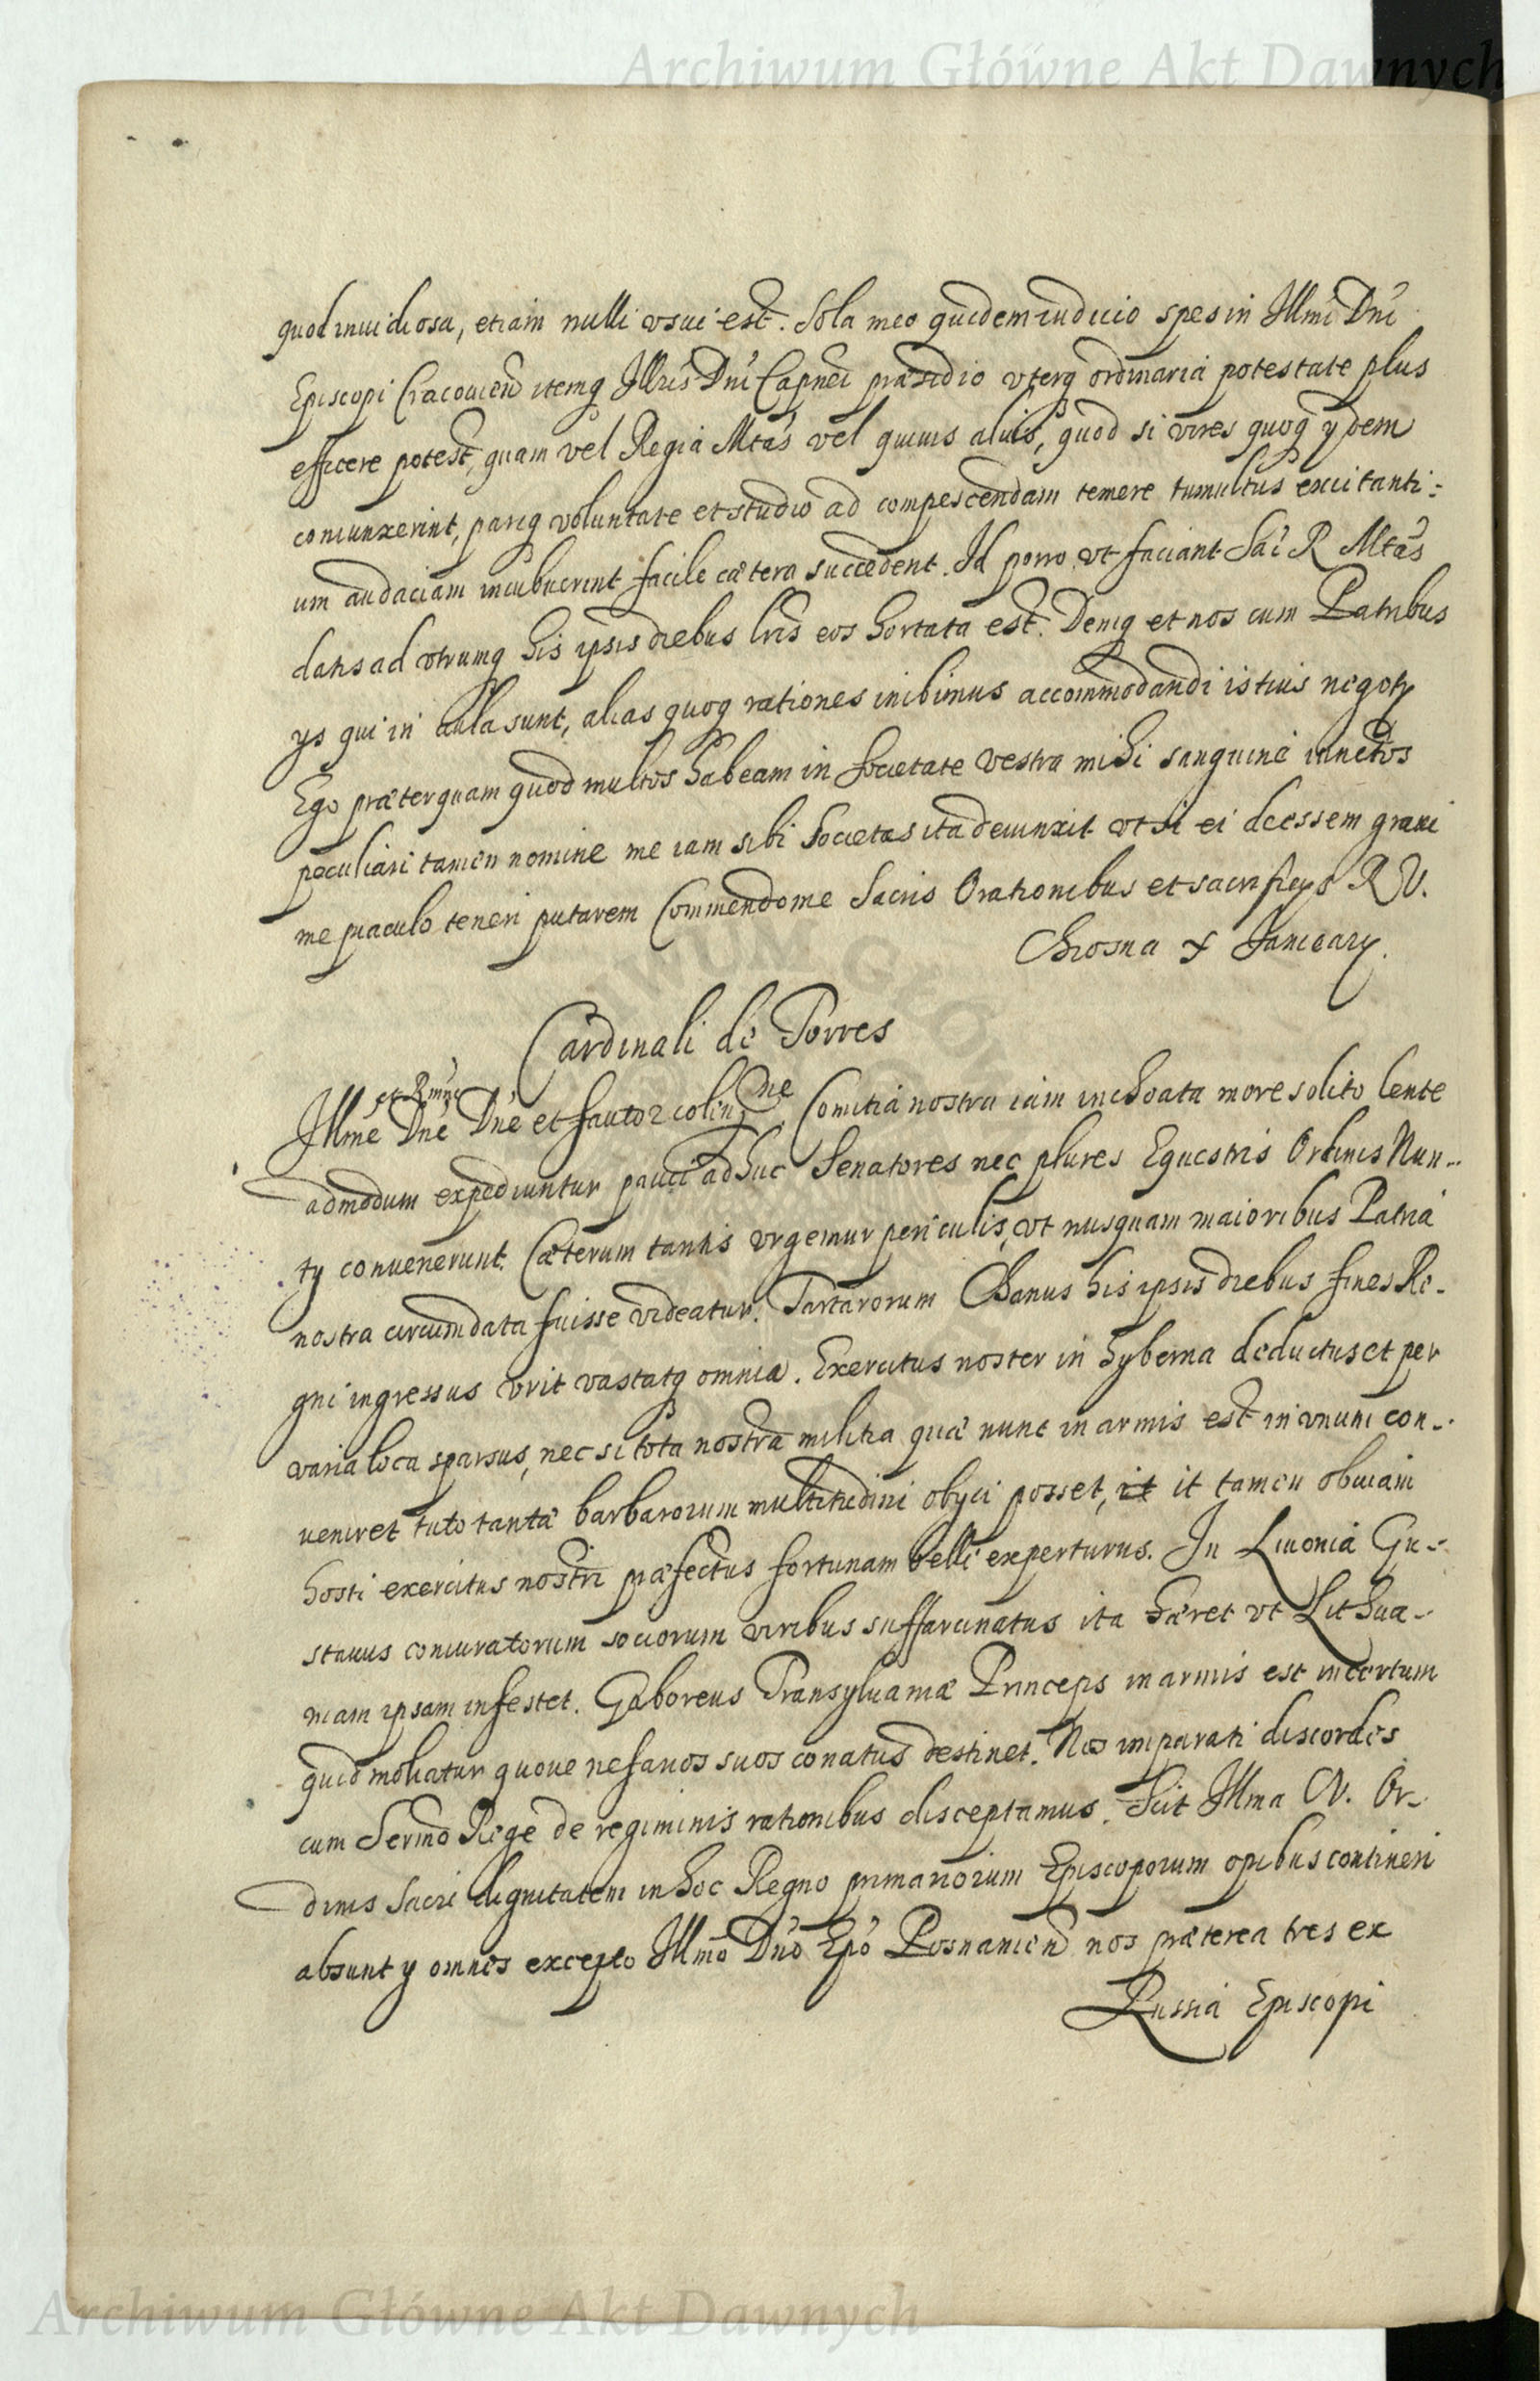 Archiwum Główne Akt Dawnych
quod inuidiosa, etiam nulli vsui est. Sola meo quidem iudicio spes in Illmi Dni
Episcopi Cracouien itemq Illris Dni Capnei præsidio vterq ordinaria potestate plus
efficere potest, quam vel Regia Mtas vel quiuis alius, quod si vires quoq ydem
coniunxerint, pariq voluntate et studio ad compescendam temere tumultus excitanti:
um audaciam incubuerint facile cætera succedent. Id porro vt faciant Sac R Mtas
datis ad vtrumq his ipsis diebus lris eos hortata est. Deniq et nos cum Patribus
ys qui in aula sunt, alias quoq rationes inibimus accommodandi istius negoty
Ego præterquam quod multos habeam in Societate vestra mihi sanguine iunctos
peculiari tamen nomine me iam sibi Societas ita deuinxit vt si ei deessem graui
me piaculo teneri putarem Commendo me Sacris Orationibus et sacrificys R V.
Chrosna X January.
Cardinali de Torres
et Rme
Illme Dne Dne et fautor colen ne. Comitia nostra iam inchoata more solito lente
admodum expediuntur pauci adhuc Senatores nec plures Equestris Ordinis Nun-
ty conuenerunt. Cæterum tantis vrgemur periculis, vt nusquam maioribus Patria
nostra circumdata fuisse videatur. Tartarorum Chanus his ipsis diebus fines Re-
gni ingressus vrit vastatq omnia. Exercitus noster in hyberna deductus et per
varia loca sparsus, nec si tota nostra militia quæ nunc in armis est in vnum con-
ueniret tuto tantæ barbarorum multitudini obyci posset, it it tamen obuiam
hosti exercitus nostri præfectus fortunam belli experturus. In Liuonia Gu-
stauus coniuratorum sociorum viribus suffarcinatus ita hæret vt Lithua-
niam ipsam infestet. Gaboreus Transyluaniæ Princeps in armis est incertum
quid moliatur quoue nefarios suos conatus destinet. Nos imparati discordes
cum Sermo Rege de regiminis rationibus disceptamus. Scit Illma V. Or-
dinis Sacri dignitatem in hoc Regno primariorum Episcoporum opibus contineri
absunt y omnes excepto Illmo Dno Epo Posnanien nos præterea tres ex
Russia Episcopi
Archiwum Główne Akt Dawnych